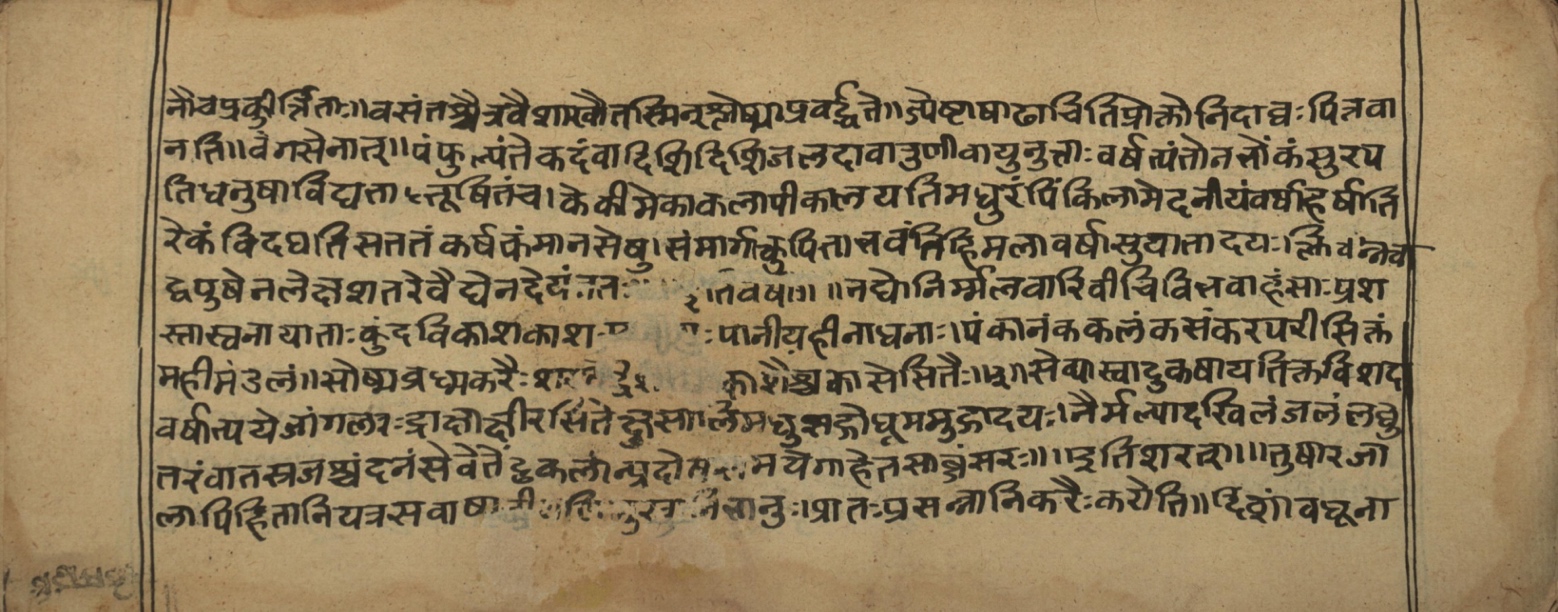 नौचप्रकीर्त्तिताः॥वसंतश्चैत्रवैशाखौतस्मिन्श्लेष्माप्रवर्द्धते॥ज्येष्टाषाढाचितिप्रोक्तोनिदाघः पित्तवा
नति॥वंगसेनात्॥पंफुल्यंतेकदंवादिशिदिशिजलदावारुणीवायुनुत्ताः वर्षत्यंतोनत्तोंकंसुरप
तिधनुषाविद्युत्ताऽभूषितंच।केकीमेकाकलापीकालयतिमधुरंपिंकिलामेदनीयंवर्षाहर्षाति
रेकं विदधतिसततंकर्षकंमानसेषु।संमार्गाकुपितात्तवंतिहिमलावर्षासुवातादयः।क्लिवंन्नवा
द्वपुषेनलेक्षशतरेवैद्येनदेयं ॥नद्योनिर्म्मलवारिवीचिवित्तवाहंसाः प्रश
स्तास्वनायाताः कुंदविकाशकाश पानीयहीनाघनाः।पंकानंककलंकसंकरपरीसिक्तं
महीमंडलं॥सोष्मव्रध्मकरैः काशैश्चकासेसितैः॥२॥सेव्यास्वादुकषायतिक्तविशद
वर्षात्ययेजांगलरः द्राक्षाक्षीरसितेक्षुसालिमधुसद्गोधूममुद्गादयः।नैर्मल्यादखिलंजलंलघु
तरंवातस्रजश्चंदनंसेवेतेंदुकलांप्रदोस मयेगाहेतसाब्जंसरः॥ ॥इतिशरत्॥ ॥तुषारजा
लापिहितानियत्रसवाष्प प्रातःप्रसन्नानिकरैःकरोति॥दिशांवधूना